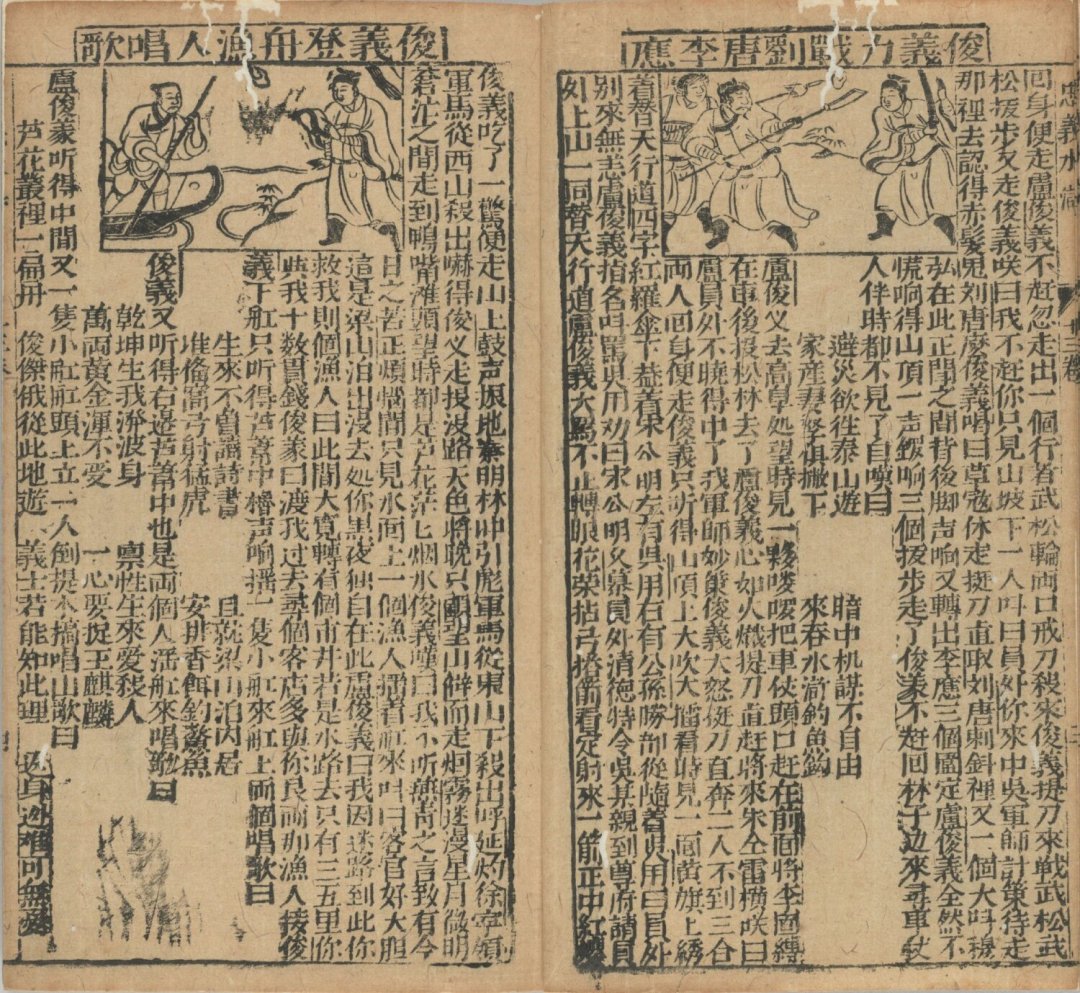 忠義水滸
三卷
俊義力戰劉唐李應
回身便走盧俊義不赶忽走出一個行者武松輪両口戒刀殺來俊義提刀來戦武松武
松拔步又走俊義咲曰我不赶你只見山坡下一人呌曰員外你來中吳軍師計策待走
那裡去認得赤髮鬼刘唐麽俊義喝曰草寇休走挺刀直取刘唐剌斜裡又一個大呌穆
弘在此正鬥之間背後脚声响又轉出李應三個圍定盧俊義全然不
慌响得山頂一声鑼响三個拔步走了俊義不赶回林子边來尋車仗
人伴時都不見了自嘆曰
避災欲徃泰山遊 暗中机謀不自由
家産妻孥俱撇下 來吞水滸釣魚鈎
盧俊义去高阜処望時見一夥嘍囉把車仗頭口赶在前面將李固縛
在車後投松林去了盧俊義心如火熾提刀直赶將來朱仝雷横咲曰
盧員外不曉得中了我軍師妙策俊義大怒挺刀直奔二人不到三合
両人回身便走俊義只听得山頂上大吹大擂看時見一面黄旗上綉
着替天行道四字紅羅傘下盖着宋公明左有吳用右有公孫勝部從隨着吳用曰員外
別來無恙盧俊義指名呌罵吳用劝曰宋公明久慕員外清德特令吳某親到尊府請員
外上山一同替天行道盧俊義大罵不止轉眼花榮拈弓搭箭看定射來一箭正中紅纓
俊義登舟漁人唱歌
俊義吃了一驚便走山上鼓声振地秦明林冲引彪軍馬從東山下殺出呼延灼徐寧領
軍馬從西山殺出嚇得俊义走投没路天色將晚只朝望山僻而走烟霧迷漫星月微明
蒼茫之間走到鴨嘴灘頭望時都是芦花茫七烟水俊義嘆曰我不听燕青之言致有今
日之苦正煩惱間只見水面上一個漁人摇着舡來呌曰客官好大胆
這是梁山泊出没去処你黒夜独自在此盧俊義曰我因迷路到此你
救我則個漁人曰此間大寛轉有個市井若是水路去只有三五里你
與我十数貫錢俊義曰渡我过去尋個客店多與你艮両那漁人接俊
義下舡只听得芦葦中櫓声响摇一隻小舡來舡上両個唱歌曰
生來不曾誦詩書 且就梁山泊内居
准俻窩弓射猛虎 安排香餌釣鰲魚
俊義又听得右邊芦葦中也是両個人活舡來唱歌曰
乾坤生我潑波身 禀性生來愛殺人
萬両黄金渾不受 一心要捉玉麒麟
盧俊義听得中間又一隻小舡舡頭上立一人倒提木篙唱山歌曰
芦花叢裡一扁舟 俊傑俄從此地遊
義士若能知此理 反身逃难可無憂